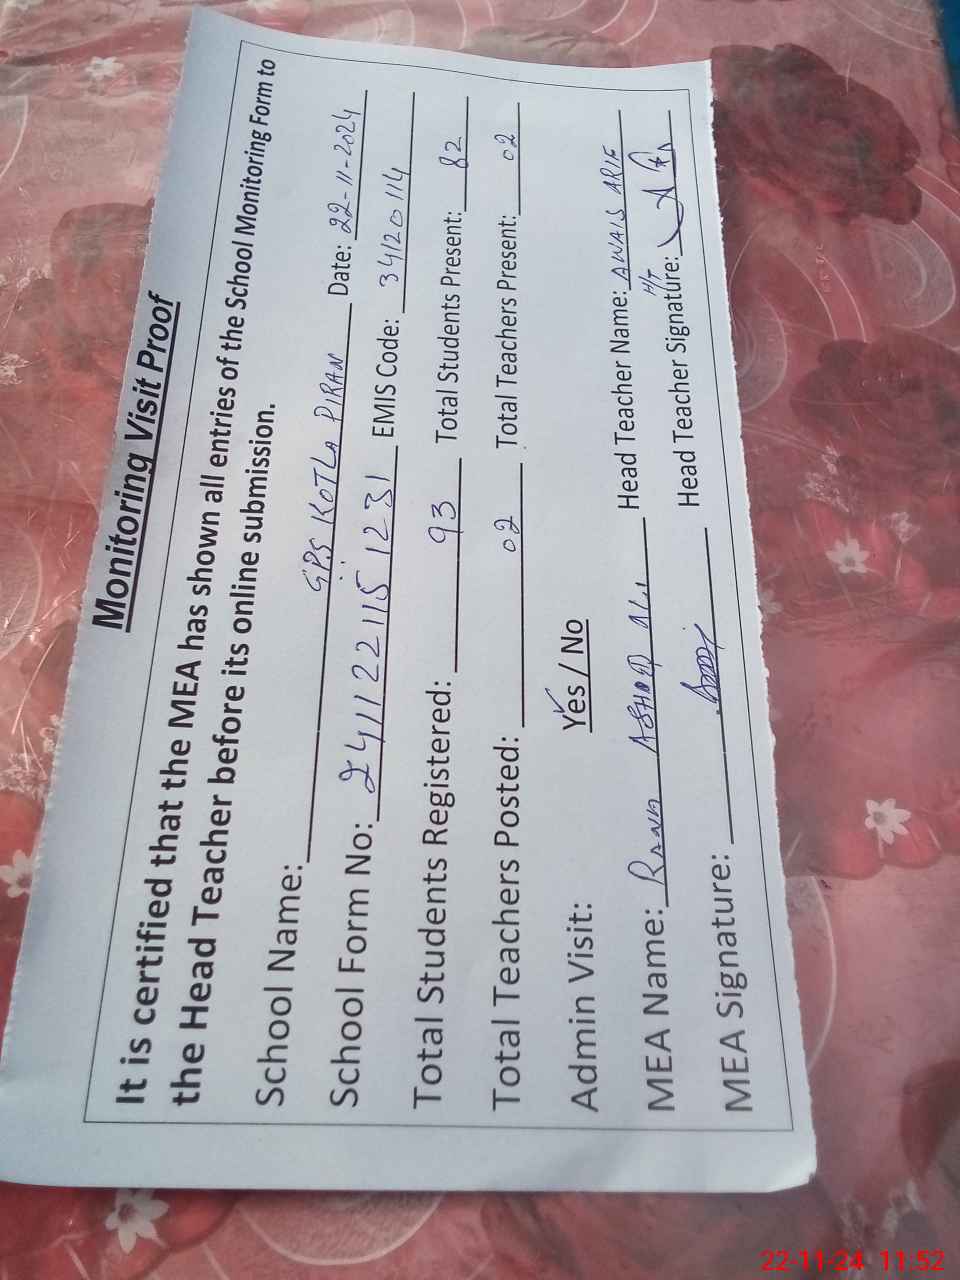 Monitoring Visit Proof
It is certified that the MEA has shown all entries of the School Monitoring Form to
the Head Teacher before its online submission.
School Name: GPS KOTLA PIRAN Date: 22-11-2024
School Form No: 241122115 1231 EMIS Code: 34120114
Total Students Registered: 93 Total Students Present: 82
Total Teachers Posted: 02 Total Teachers Present: 02
Admin Visit: Yes / No
MEA Name: RANA ALI Head Teacher Name: AWAIS ARIF
MEA Signature: Head Teacher Signature:
H/T
22-11-24 11:52